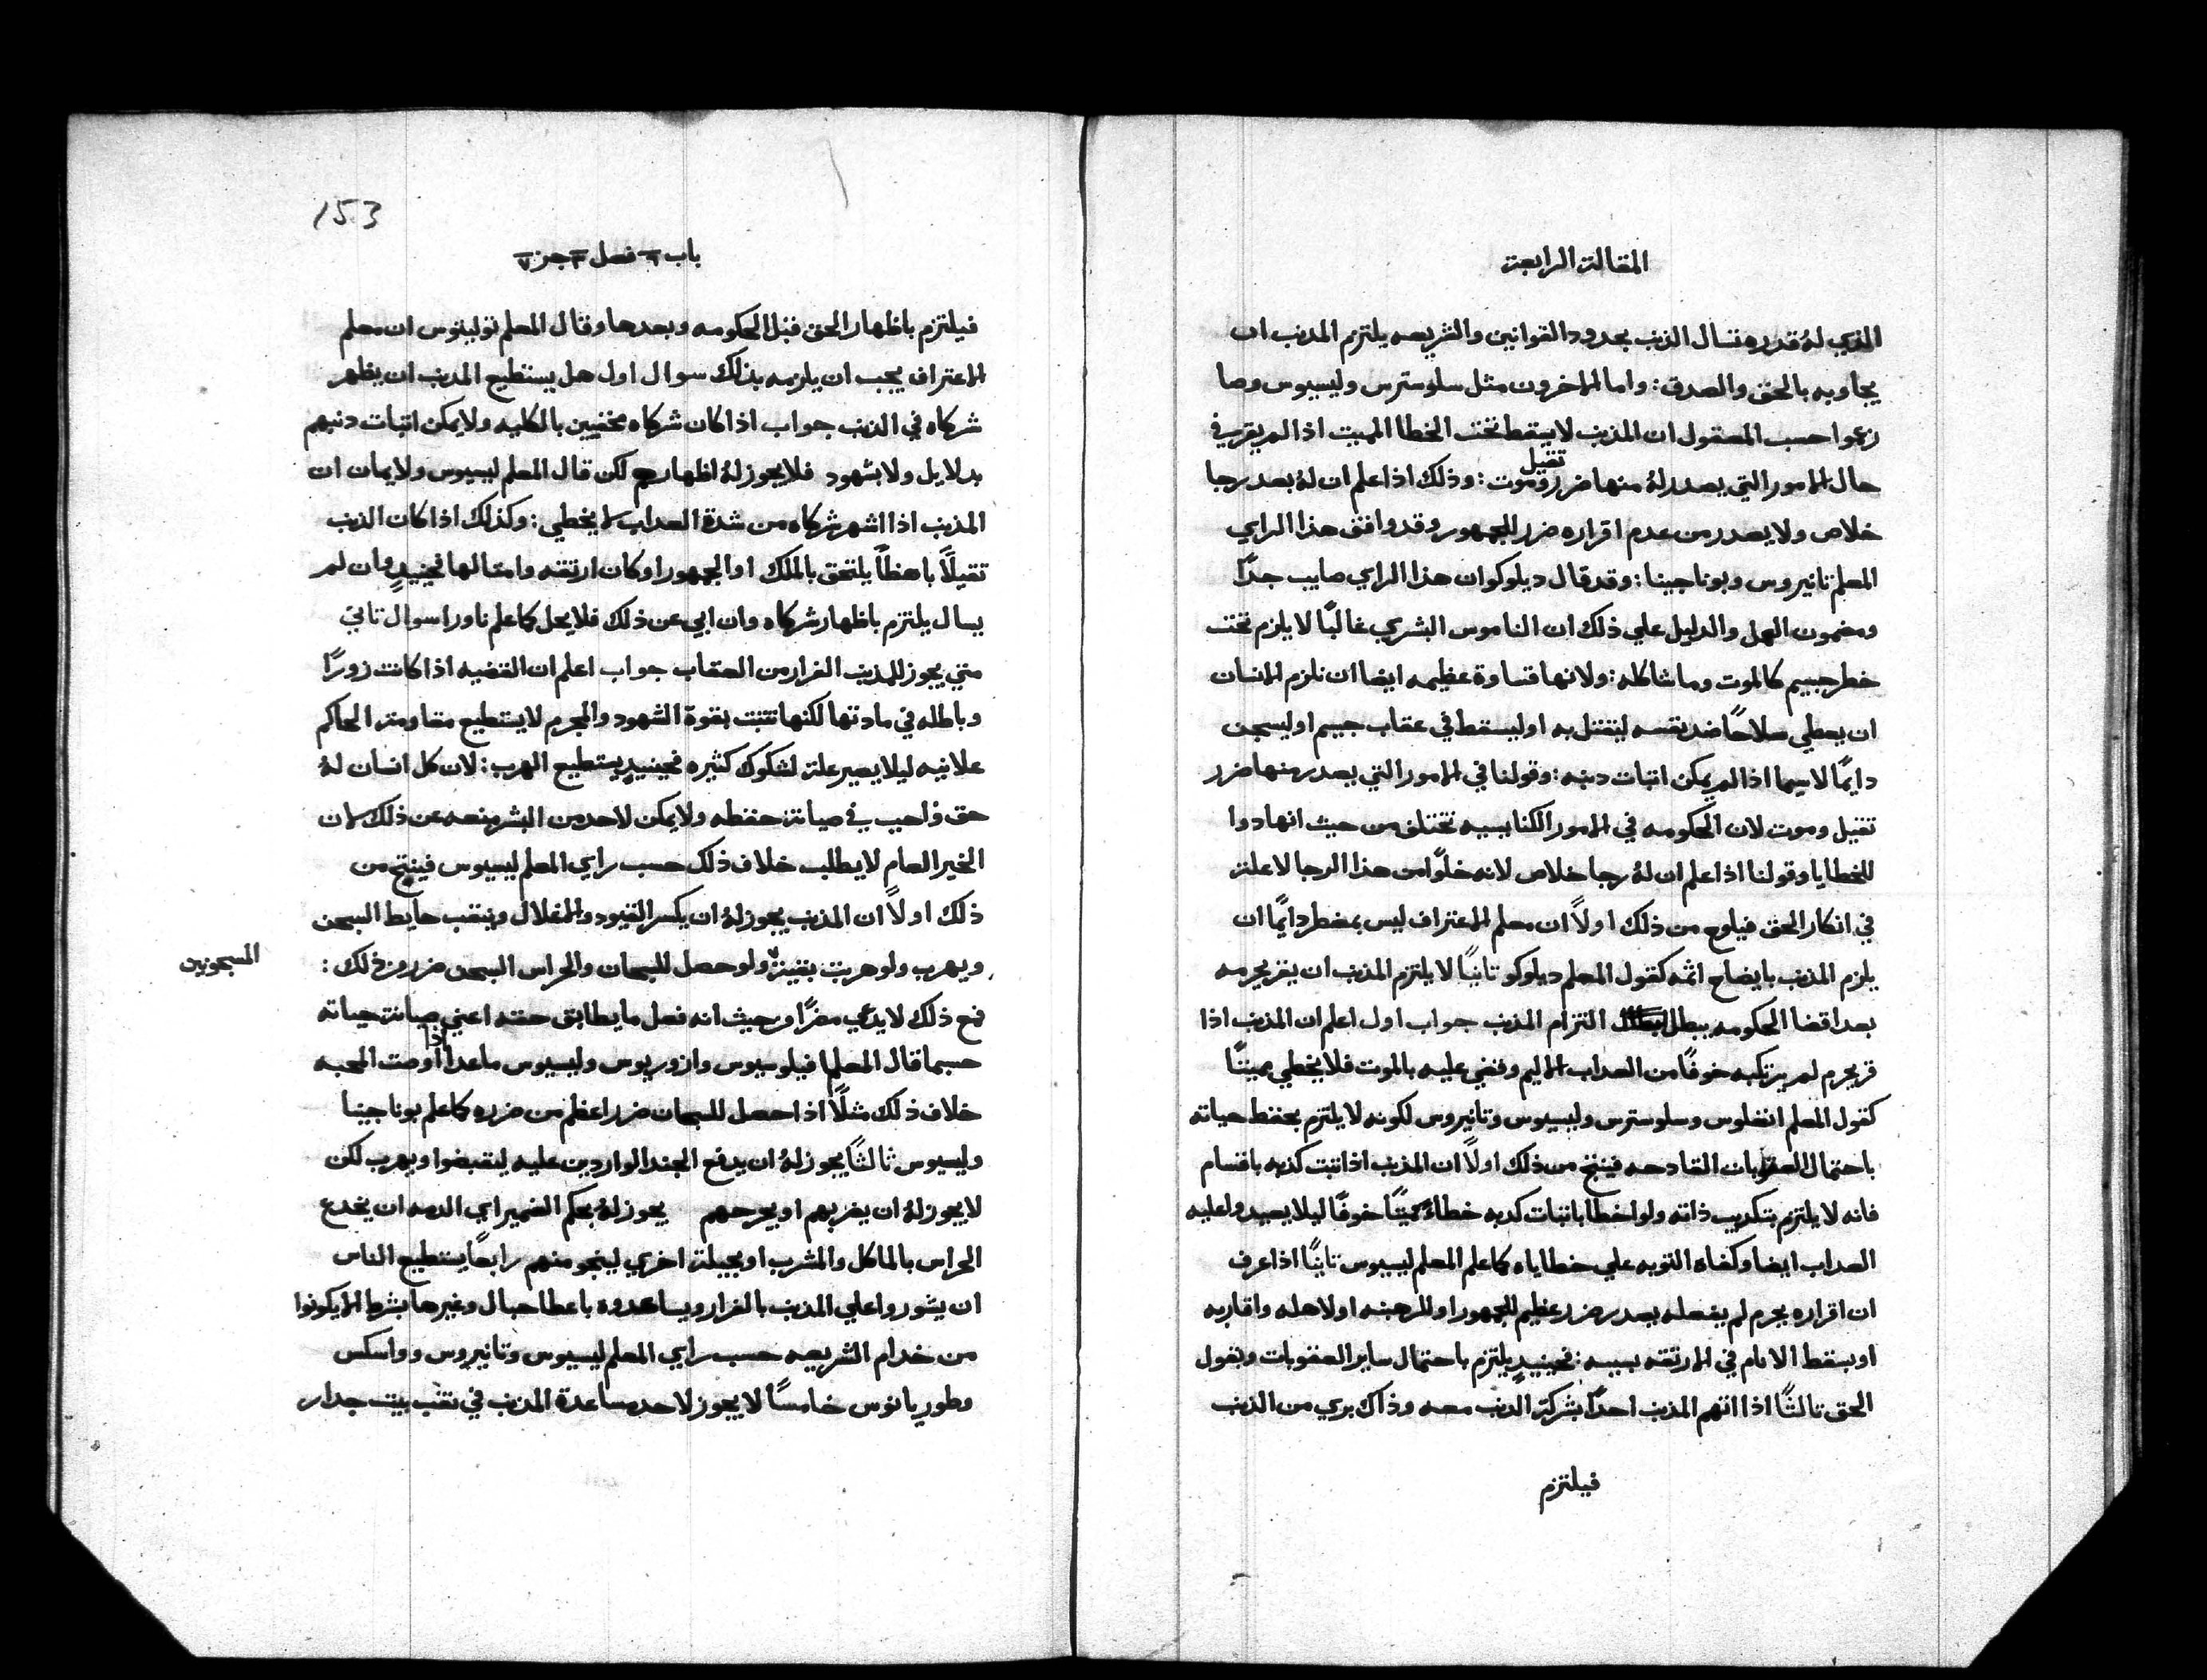 المقالة الرابعة
الذي له قدره تسال الذنب بحدود القوانين والشريعه يلتزم المدنب ان
يجاوبه بالحق والصدق: واما الاخرون مثل سلوسترس وليسيوس وصا
زعموا حسب المعقول ان المذنب لا يسقط تحت الخطا المميت اذا لم يقر في
تقيل
حال الامور التي يصدر له منها ضرر وموت: وذلك اذا علم ان له بعد رجا
خلاص ولا يصدر من عدم اقراره ضرر للجمهور وقد وافق هذا الراي
المعلم تانيروس وبوناجينا: وقد قال ديلوكوان هذا الراي صايب جدًا
ومضمون العمل والدليل علي ذلك ان الناموس البشري غالبًا لا يلزم تحت
خطر جسيم كالموت وما شاكله: ولانها قساوة عظيمه ايضا ان نلزم الانسان
ان يعطي سلاحًا ضد نفسه ليقتل به او ليسقط في عقاب جسيم او ليسجن
دايمًا لا سيما اذا لم يمكن اتبات دنبه: وقولنا في الامور التي يصدر منها ضرر
تقيل وموت لان الحكومه في الامور الكنايسيه تختلف من حيث انها دوا
للخطايا وقولنا اذا علم ان له رجا خلاص لانه خلوًا من هذا الرجا لا علة
في انكار الحق فيلوح من ذلك اولًا ان معلم الاعتراف ليس بمضطر دايمًا ان
يلزم المذنب بايضاح اثمه كقول المعلم ديلوكو تانيًا لا يلتزم المذنب ان يقر بجرمه
بعد اقضا الحكومه يبطل التزام المذنب جواب اول اعلم ان المذنب اذا
قر بجرم لم يرتكبه خوفًا من العداب الاليم وقضي عليه بالموت فلا يخطي مميتًا
كقول المعلم انضلوس وسلوسترس وليسيوس وتانيروس لكونه لا يلتزم بحفظ حياته
باحتمال العقوبات القادحه فينتج من ذلك اولًا ان المذنب اذا تبت كدبه باقسام
فانه لا يلتزم بتكديب ذاته ولو اخطا باتبات كدبه خطاءً مميتًا خوفًا ليلا يعيدوا عليه
العداب ايضا وكفاه التوبه علي خطاياه كما علم المعلم ليسيوس تانيًا اذا عرف
ان اقراره بجرم لم يفعله يصدر ضرر عظيم للجمهور او للرهبنه او لاهله واقاربه
او يسقط الانام في الارتقه بسببه: فحينيدٍ يلتزم باحتمال ساير العقوبات ويقول
الحق تالثًا اذا اتهم المذنب احدًا بشركة الدنب معه وذاك بري من الذنب
فيلتزم
153
باب ٦ فصل ٣ جز ٧
فيلتزم باظهار الحق قبل الحكومه وبعدها وقال المعلم توليتوس ان معلم
الاعتراف يجب ان يلزمه بذلك سوال اول هل يستطيع المدنب ان يظهر
شركاه في الذنب جواب اذا كان شركاه مخفيين بالكليه ولا يمكن اتبات دنبهم
بدلايل ولا بشهود فلا يجوز له اظهارهم لكن قال المعلم ليسيوس ولايمان ان
المذنب اذا اشهر شركاه من شدة العداب لا يخطي: وكذلك اذا كان الذنب
تقيلًا باهظًا يلتحق بالملك او الجمهور او كان ارتقه وامتالها فحينيدٍ وان لم
يسال يلتزم باظهار شركاه وان ابي عن ذلك فلا يحل كما علم ناورا سوال تاني
متي يجوز للمذنب الفرار من العقاب جواب اعلم ان القضيه اذا كانت زورًا
وباطله في مادتها لكنها تتبت بقوة الشهود والمجرم لا يستطيع مقاومة الحاكم
علانيه ليلا يصير علة لشكوك كثيره فحينيدٍ يستطيع الهرب: لان كل انسان له
حق واجب في صيانة حفظه ولا يمكن لاحد من البشر منعه عن ذلك لان
الخير العام لا يطلب خلاف ذلك حسب راي المعلم ليسيوس فينتج من
ذلك اولًا ان المذنب يجوز له ان يكسر القيود والاغلال وينقب حايط السجن
ويهرب ولو هربت بقية ولو حصل للسجان والحراس السجن ضرر وذلك:
المسجونين
فمع ذلك لا يدعي مضرًا من حيث انه فعل ما يطابق حقه اعني صيانة حياته
اذا
حسبما قال المعلم فيلوسيوس وازوريوس وليسيوس ماعدا اوصت المحبه
خلاف ذلك مثلًا اذا حصل للسجان ضرر اعظم من ضرره كما علم بوناجينا
وليسيوس ثالثًا يجوز له ان يدفع الجند الواردين عليه ليقبضوا ويهرب لكن
لا يجوز له ان يضربهم او يجرحهم يجوز له بحكم الضمير اي الدمه ان يخدع
الحراس بالماكل والمشرب او بحيلة اخري لينجو منهم رابعًا يستطيع الناس
ان يشوروا علي المذنب بالفرار ويساعدوه باعطا حبال وغيرها بشرط الا يكونوا
من خدام الشريعه حسب راي المعلم ليسيوس وتانيروس وواسكس
وطوريانوس خامسًا لا يجوز لاحد مساعدة المذنب في نقب بيت جدار